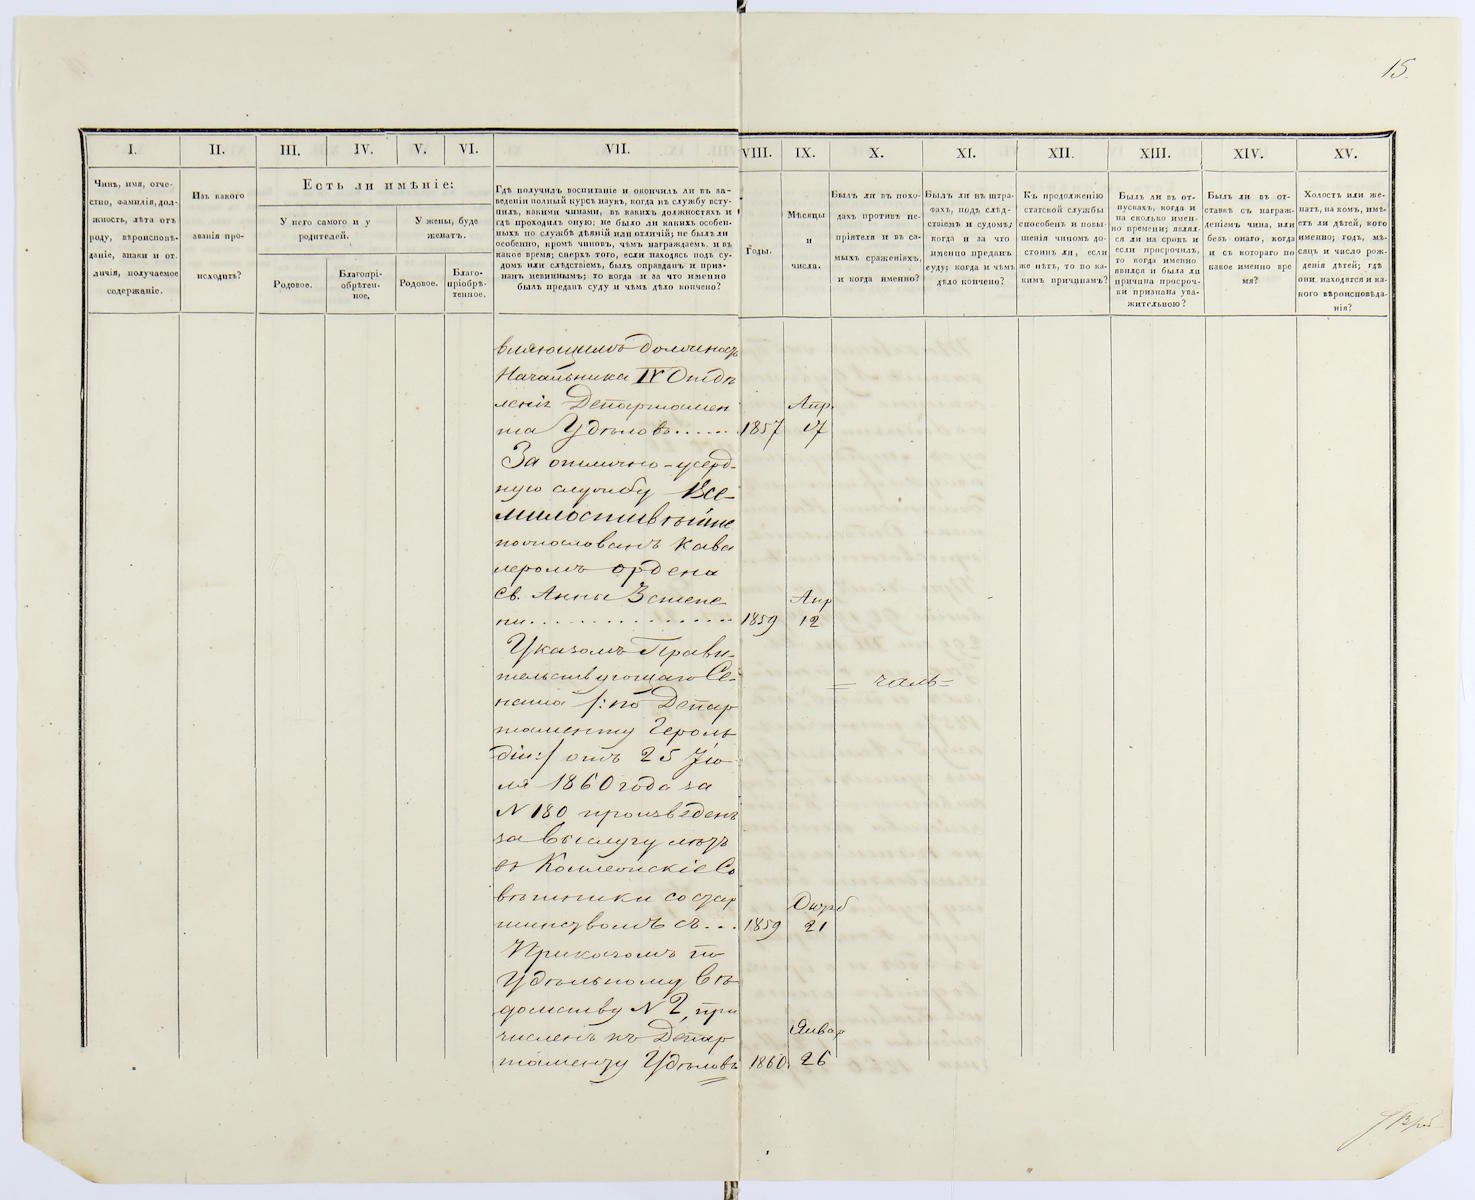 15.
I.
II.
III.
IV.
V.
VI.
VII.
VIII.
IX.
X.
XI.
XII.
XIII.
XIV.
XV.
Чинъ, имя, отче-
ство, фамилія, дол-
жность, лѣта отъ
роду, вѣроисповѣ-
даніе, знаки и от-
личія, получаемое
содержаніе.
Изъ какого
званія про-
исходитъ?
Есть ли имѣніе:
У него самого и у
родителей.
У жены, буде
женатъ.
Родовое.
Благопрі-
обрѣтен-
ное.
Родовое.
Благо-
пріобрѣ-
тенное.
Гдѣ получилъ воспитаніе и окончилъ ли въ за-
веденіи полный курсъ наукъ, когда въ службу всту-
пилъ, какими чинами, въ какихъ должностяхъ и
гдѣ проходилъ оную; не было ли какихъ особен-
ныхъ по службѣ дѣяній или отличій; не былъ ли
особенно, кромѣ чиновъ, чѣмъ награждаемъ, и въ
какое время; сверхъ того, если находясь подъ су-
домъ или слѣдствіемъ, былъ оправданъ и приз-
нанъ невиннымъ; то когда и за что именно
былъ преданъ суду и чѣмъ дѣло кончено?
Годы.
Мѣсяцы
и
числа.
Былъ ли въ похо-
дахъ противъ не-
пріятеля и въ са-
мыхъ сраженіяхъ,
и когда именно?
Былъ ли въ штра-
фахъ, подъ слѣд-
ствіемъ и судомъ;
когда и за что
именно преданъ
суду; когда и чѣмъ
дѣло кончено?
Къ продолженію
статской службы
способенъ и повы-
шенія чиномъ до-
стоинъ ли, если
же нѣтъ, то по ка-
кимъ причинамъ?
Былъ ли въ от-
пускахъ, когда и
на сколько имен-
но времени; являл-
ся ли на срокъ и
если просрочилъ,
то когда именно
явился и была ли
причина просроч-
ки признана ува-
жительною?
Былъ ли въ от-
ставкѣ съ награж-
деніемъ чина, или
безъ онаго, когда
и съ котораго по
какое именно вре
мя?
Холостъ или же-
натъ, на комъ, имѣ-
етъ ли дѣтей, кого
именно; годъ, мѣ-
сяцъ и число рож-
денія дѣтей; гдѣ
они находятся и ка-
кого вѣроисповѣда-
нія?
вляющимъ должность
Начальника IV Отдѣ
ленія Департамен
та Удѣловъ...... 1857 Апр. 17
За отлично-усерд-
ную службу Все-
милостивѣйше
пожалованъ кава
леромъ ордена
Св. Анны 3 степе
ни............... 1859 Апр 12
Указомъ Прави-
тельствующаго Се-
ната /:по Депар
таменту Героль
діи:/ отъ 25 Ію
ля 1860 года за
N 180 произведенъ
за выслугу лѣтъ
въ Коллежскіе Со
вѣтники со стар
шинствомъ съ... 1859 Октрб 21
Приказомъ по
Удѣльному Вѣ
домству N 2, при
численъ къ Депар
таменту Удѣловъ 1860. Январ 26